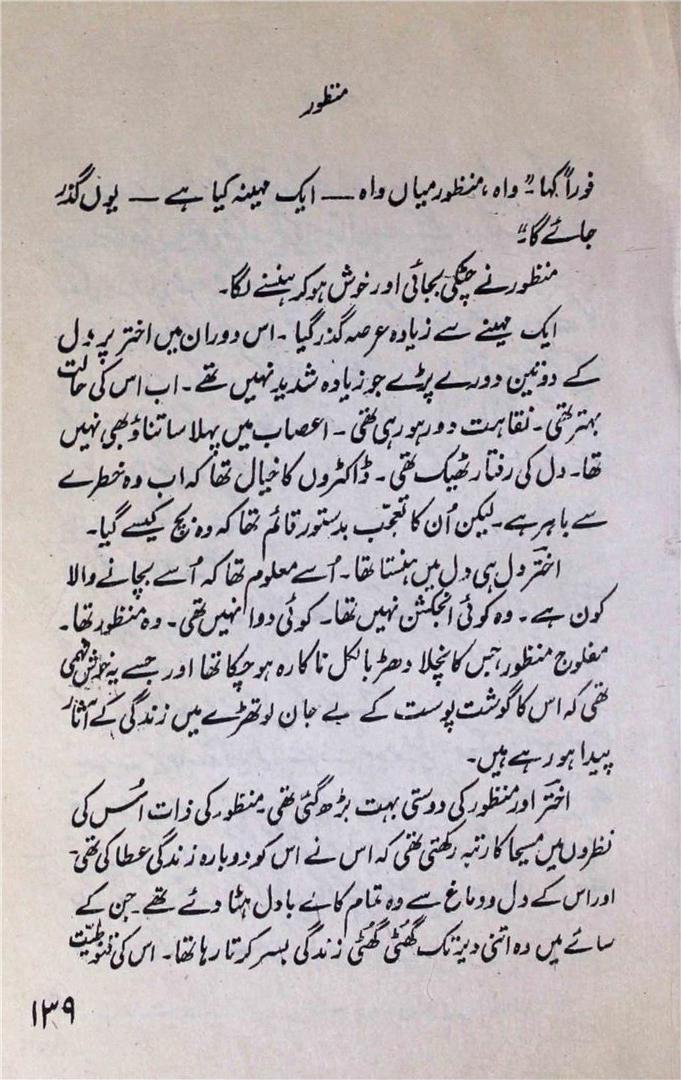 منظور
فوراً کہا۔ "واہ، منظور میاں واہ — ایک مہینہ کیا ہے — یوں گذر
جائے گا۔"
منظور نے چٹکی بجائی اور خوش ہو کر ہنسنے لگا۔
ایک مہینے سے زیادہ عرصہ گذر گیا۔ اس دوران میں اختر پر دل
کے دو تین دورے پڑے جو زیادہ شدید نہیں تھے۔ اب اس کی حالت
بہتر تھی۔ نقاہت دور ہو رہی تھی۔ اعصاب میں پہلا سا تناؤ بھی نہیں
تھا۔ دل کی رفتار ٹھیک تھی۔ ڈاکٹروں کا خیال تھا کہ اب وہ خطرے
سے باہر ہے۔ لیکن اُن کا تعجب بدستور قائم تھا کہ وہ بچ کیسے گیا۔
اختر دل ہی دل میں ہنستا تھا۔ اُسے معلوم تھا کہ اُسے بچانے والا
کون ہے۔ وہ کوئی انجکشن نہیں تھا۔ کوئی دوا نہیں تھی۔ وہ منظور تھا۔
مفلوج منظور، جس کا نچلا دھڑ بالکل ناکارہ ہو چکا تھا اور جسے یہ خوش فہمی
تھی کہ اس کا گوشت پوست کے بے جان لوتھڑے میں زندگی کے آثار
پیدا ہو رہے ہیں۔
اختر اور منظور کی دوستی بہت بڑھ گئی تھی۔ منظور کی ذات اُس کی
نظروں میں مسیحا کا رتبہ رکھتی تھی کہ اس نے اس کو دوبارہ زندگی عطا کی تھی۔
اور اس کے دل و دماغ سے وہ تمام کالے بادل ہٹا دئے تھے۔ جن کے
سائے میں وہ اتنی دیر تک گھٹی گھٹی زندگی بسر کرتا رہا تھا۔ اس کی قنوطیت
۱۳۹